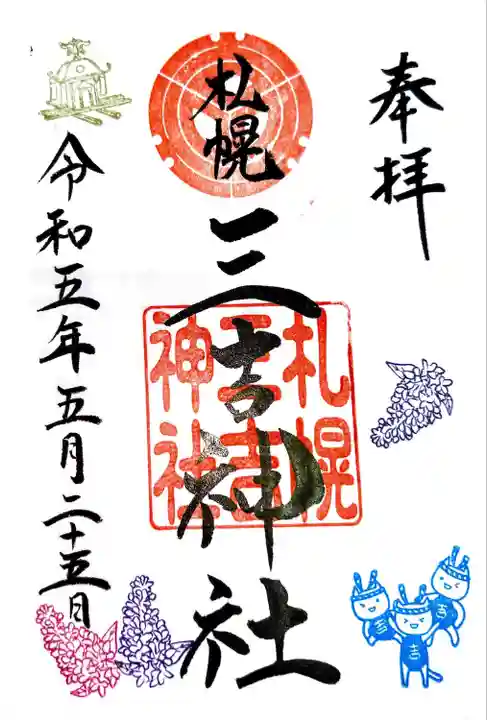 奉拝
札幌
三吉神社
札幌
三吉
神社
令和五年五月二十五日
吉
吉
吉